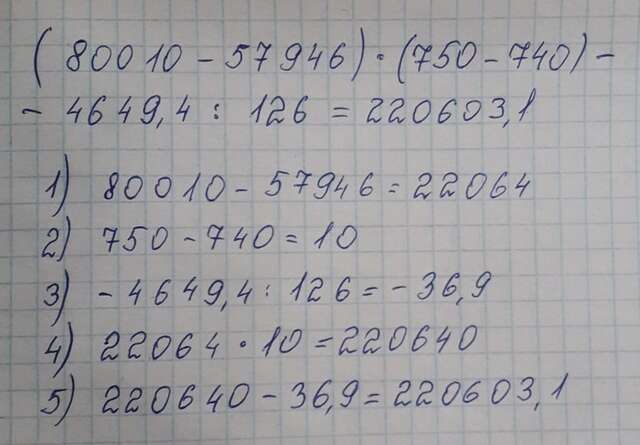 (80010 - 57946) · (750 - 740) -
- 4649,4 : 126 = 220603,1
1) 80010 - 57946 = 22064
2) 750 - 740 = 10
3) - 4649,4 : 126 = - 36,9
4) 22064 · 10 = 220640
5) 220640 - 36,9 = 220603,1